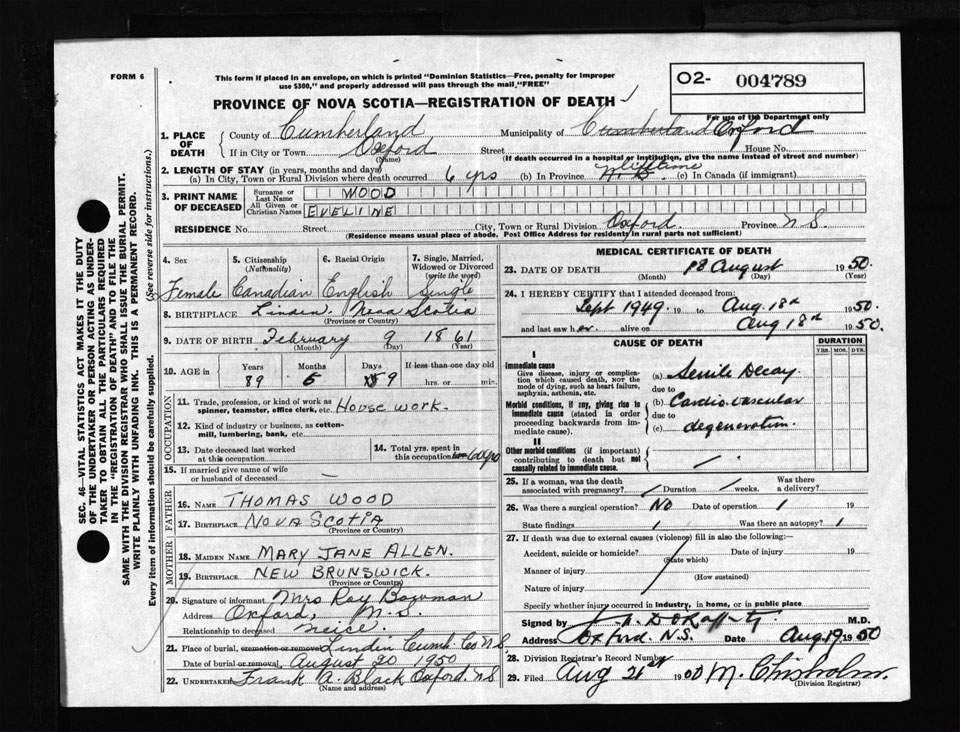 FORM 6
This form if placed in an envelope, on which is printed "Dominion Statistics—Free, penalty for improper
use $300," and properly addressed will pass through the mail "FREE"
O2- 004789
For use of the Department only
PROVINCE OF NOVA SCOTIA—REGISTRATION OF DEATH
1. PLACE OF DEATH
County of Cumberland Municipality of Cumberland Oxford
If in City or Town Oxford Street House No.
(Name) (If death occurred in a hospital or institution, give the name instead of street and number)
2. LENGTH OF STAY (in years, months and days)
(a) In City, Town or Rural Division where death occurred 6 yrs (b) In Province lifetime (c) In Canada (if immigrant)
3. PRINT NAME OF DECEASED
Surname or Last Name WOOD
All Given or Christian Names EVELINE
RESIDENCE No. Street City, Town or Rural Division Oxford. Province N S
(Residence means usual place of abode. Post Office Address for residents in rural parts not sufficient)
4. Sex Female
5. Citizenship (Nationality) Canadian
6. Racial Origin English
7. Single, Married, Widowed or Divorced (write the word) Single
8. BIRTHPLACE Linden, Nova Scotia
(Province or Country)
9. DATE OF BIRTH February 9 1861
(Month) (Day) (Year)
10. AGE in Years Months Days If less than one day old
89 5 9 hrs. or min.
OCCUPATION
11. Trade, profession, or kind of work as spinner, teamster, office clerk, etc. House work.
12. Kind of industry or business, as cotton-mill, lumbering, bank, etc.
13. Date deceased last worked at this occupation
14. Total yrs. spent in this occupation 60 yrs
15. If married give name of wife or husband of deceased
FATHER
16. NAME THOMAS WOOD
17. BIRTHPLACE NOVA SCOTIA
(Province or Country)
MOTHER
18. MAIDEN NAME MARY JANE ALLEN.
19. BIRTHPLACE NEW BRUNSWICK.
(Province or Country)
20. Signature of informant Mrs Roy Bowman
Address Oxford, N.S.
Relationship to deceased neice.
21. Place of burial, cremation or removal Lindin Cumb. Co N S
Date of burial or removal August 20 1950
22. UNDERTAKER Frank A. Black Oxford. N S
(Name and address)
MEDICAL CERTIFICATE OF DEATH
23. DATE OF DEATH 18 August 1950.
(Month) (Day) (Year)
24. I HEREBY CERTIFY that I attended deceased from:
Sept 1949. 19 to Aug. 18th 1950.
and last saw her alive on Aug 18th 1950.
CAUSE OF DEATH DURATION
YRS. MOS. DYS.
I
Immediate cause
Give disease, injury or complication which caused death, NOT the mode of dying, such as heart failure, asphyxia, asthenia, etc.
(a) Senile Decay.
due to
Morbid conditions, if any, giving rise to immediate cause (stated in order proceeding backwards from immediate cause).
(b) Cardio vascular
due to
(c) degeneration.
II
Other morbid conditions (if important) contributing to death but not causally related to immediate cause.
25. If a woman, was the death associated with pregnancy? Duration weeks. Was there a delivery?
26. Was there surgical operation? No Date of operation 19
State findings Was there an autopsy?
27. If death was due to external causes (violence) fill in also the following:—
Accident, suicide or homicide? Date of injury 19
(State which)
Manner of injury
(How sustained)
Nature of injury
Specify whether injury occurred in industry, in home, or in public place
Signed by M.D.
Address Oxford. N.S. Date Aug 19 1950
28. Division Registrar's Record Number
29. Filed Aug 21st M. Chisholm.
(Division Registrar)
SEC. 46—VITAL STATISTICS ACT MAKES IT THE DUTY
OF THE UNDERTAKER OR PERSON ACTING AS UNDERTAKER TO OBTAIN ALL THE PARTICULARS REQUIRED
IN THE "REGISTRATION OF DEATH" AND TO FILE THE
SAME WITH THE DIVISION REGISTRAR WHO SHALL ISSUE THE BURIAL PERMIT.
WRITE PLAINLY WITH UNFADING INK. THIS IS A PERMANENT RECORD.
Every item of information should be carefully supplied. (See reverse side for instructions.)